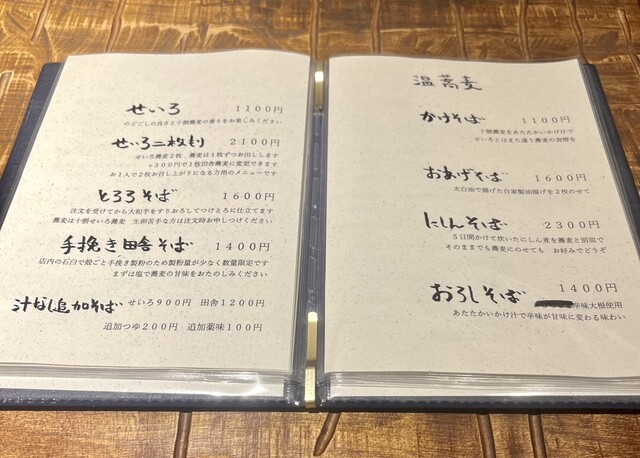 せいろ 1100円
のどごしの良さと十割蕎麦の香りをお楽しみください
せいろ二枚もり 2100円
せいろ蕎麦2枚、蕎麦は1枚ずつお出しします
+300円で1枚田舎蕎麦に変更できます
お1人で2枚お召し上がりになる方用のメニューです
とろろそば 1600円
注文を受けてから大和芋をすりおろしてつけとろに仕立てます
蕎麦は十割せいろ蕎麦 生卵苦手な方は注文時お申しつけください
手挽き田舎そば 1400円
店内の石臼で殻ごと手挽き製粉のため製粉量が少なく数量限定です
まずは塩で蕎麦の甘味をおたのしみください
汁なし追加そば せいろ900円 田舎1200円
追加つゆ200円 追加薬味100円
温蕎麦
かけそば 1100円
十割蕎麦をあたたかいかけ汁で
せいろとはまた違う蕎麦の表情を
おあげそば 1600円
太白油で揚げた自家製油揚げを2枚のせて
にしんそば 2300円
5日間かけて炊いたにしん煮を蕎麦と別皿で
そのままでも蕎麦にのせても お好みでどうぞ
おろしそば 1400円
辛味大根使用
あたたかいかけ汁で辛味が甘味に変わる味わい